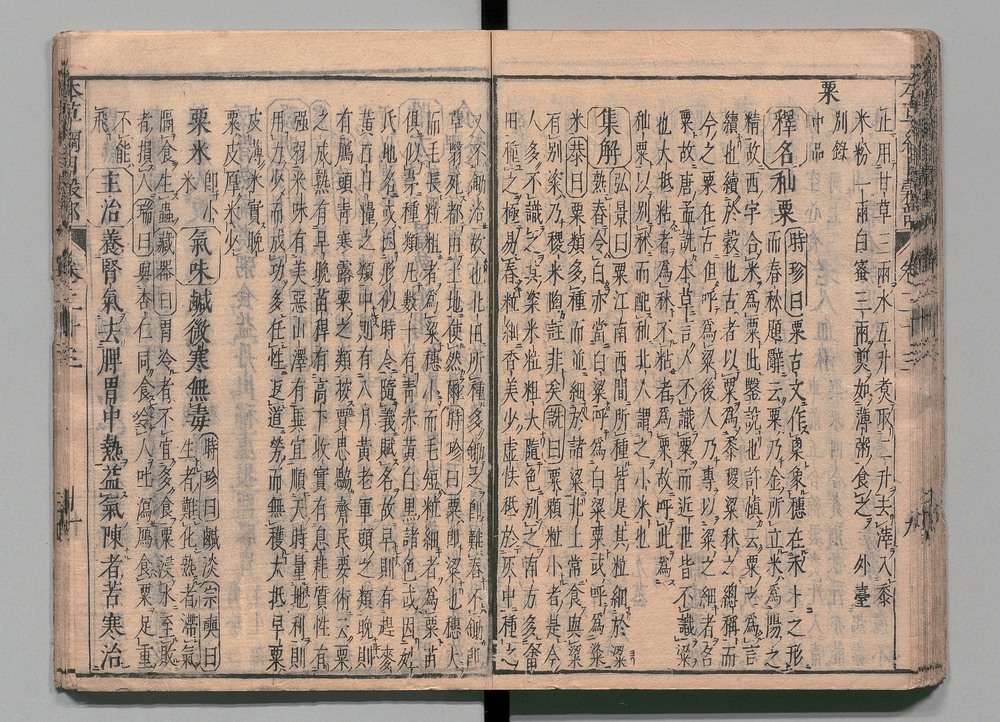 止用甘草二兩水五升煮取二升去滓入黍
米粉一兩白蜜三兩煎如薄粥食之 外臺
粟
別錄
中品
釋名秈粟 時珍曰粟古文作𥻆象穗在禾上之形
而春秋題辭云粟乃金所立米為陽之
精故西字合米為粟此鑿說也許慎云粟之為言
續也續於穀也古者以粟為黍稷粱秫之總稱而
今之粟在古但呼為粱後人乃專以粱之細者名
粟故唐孟詵本草言人不識粟而近世皆不識粱
也大抵粘者為秫不粘者為粟故呼此為
秈粟以別秫而配秈北人謂之小米也
集解 弘景曰粟江南西間所種皆是其粒細於粱
熟舂令白亦當白粱呼為白粱粟或呼為粢
米恭曰粟類多種而並細於諸粱北土常食與粱
有別粢乃稷米陶註非矣詵曰粟顆粒小者是今
人多不識之其粱米粒粗大隨色別之南方多畬
田種之極易舂粒細香美少虛怯秪於灰中種之
又不鋤治故也北田所種多鋤之即難舂不鋤即
草翳死都由土地使然爾時珍曰粟即粱也穗大
而毛長粒粗者為粱穗小而毛短粒細者為粟苗
俱似茅種類凡數十有青赤黃白黑諸色或因姓
氏地名或因形似時令隨義賦名故早則有趕麥
黃百日糧之類中則有八月黃老軍頭之類晚則
有雁頭青寒露粟之類按賈思勰齊民要術云粟
之成熟有早晚苗稈有高下收實有息耗質性有
强弱米味有美惡山澤有異宜順天時量地利則
用力少而成功多任性返道勞而無穫大抵早粟
皮薄米實晚
粟皮厚米少
粟米 即小米 氣味鹹微寒無毒 時珍曰鹹淡宗奭曰
生者難化熟者滯氣
隔食生蟲藏器曰胃冷者不宜多食粟浸水至敗
者損人瑞曰與杏仁同食令人吐瀉雁食粟足重
不能飛
主治養腎氣去脾胃中熱益氣陳者苦寒治